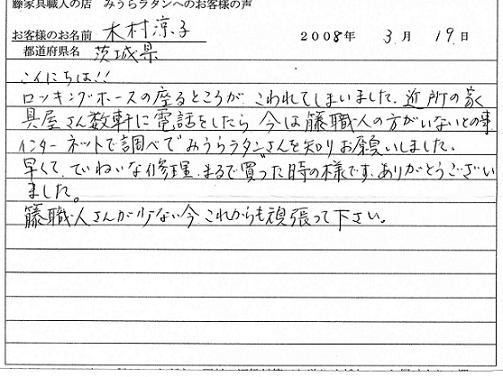 藤家具職人の店 みうらラタンへのお客様の声
お客様のお名前 木村涼子 2008年 3月 19日
都道府県名 茨城県
こんにちは!!
ロッキングホースの座るところが、こわれてしまいました。近所の家
具屋さん数軒に電話をしたら 今は藤職人の方がいないとの事
インターネットで調べてみうらラタンさんを知りお願いしました。
早くて、ていねいな修理、まるで買った時の様です。ありがとうござい
ました。
藤職人さんが少ない今 これからも頑張って下さい。